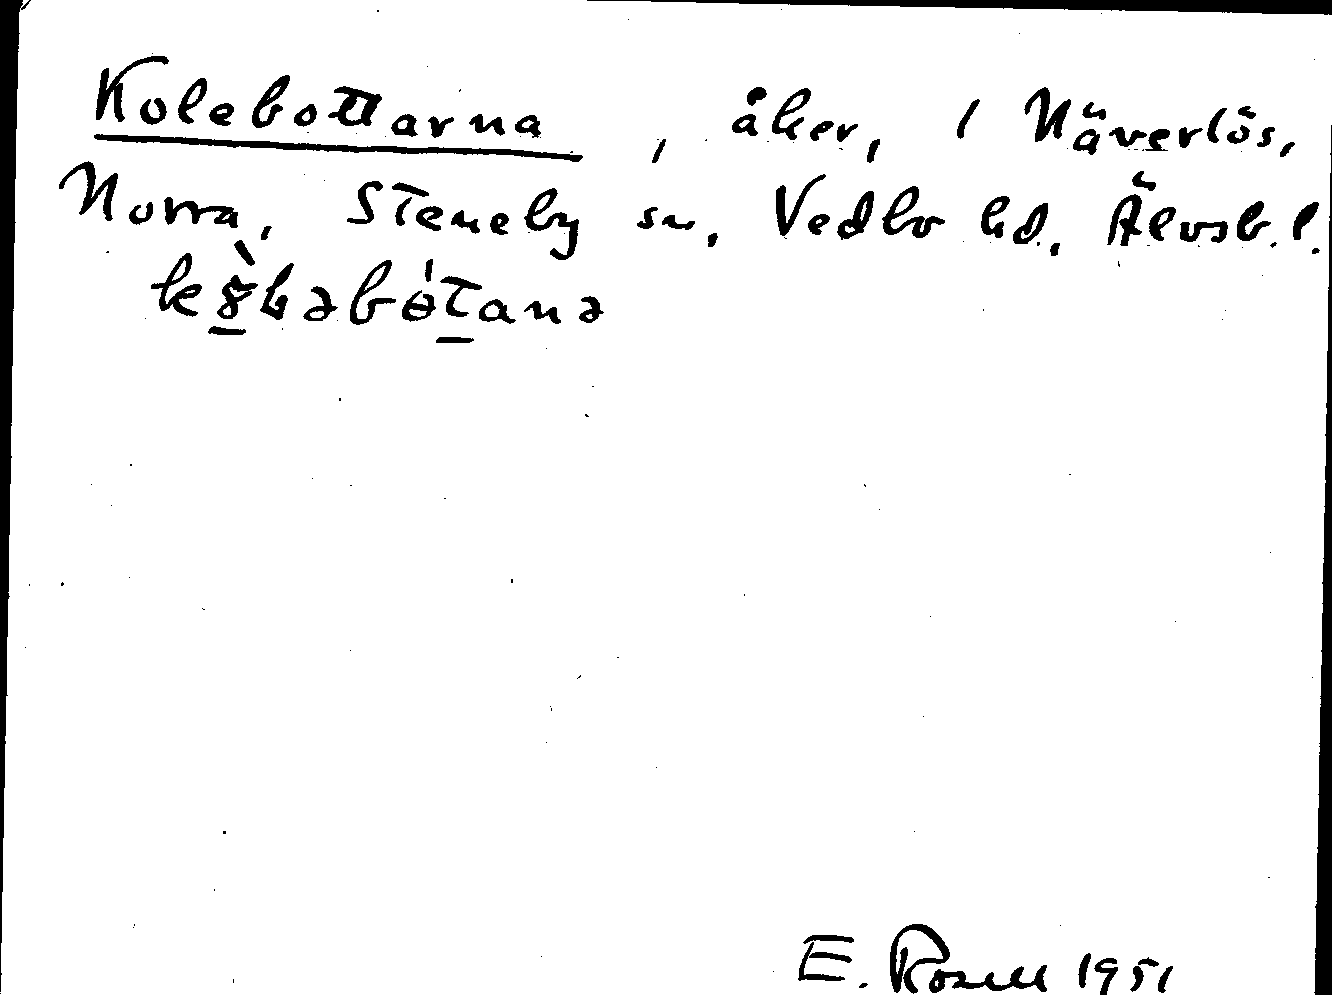 Kolebottarna, åker, 1 Näverlös,
Norra, Steneby sn, Vedbo hd, Älvsb. l.
E. Rosell 1951